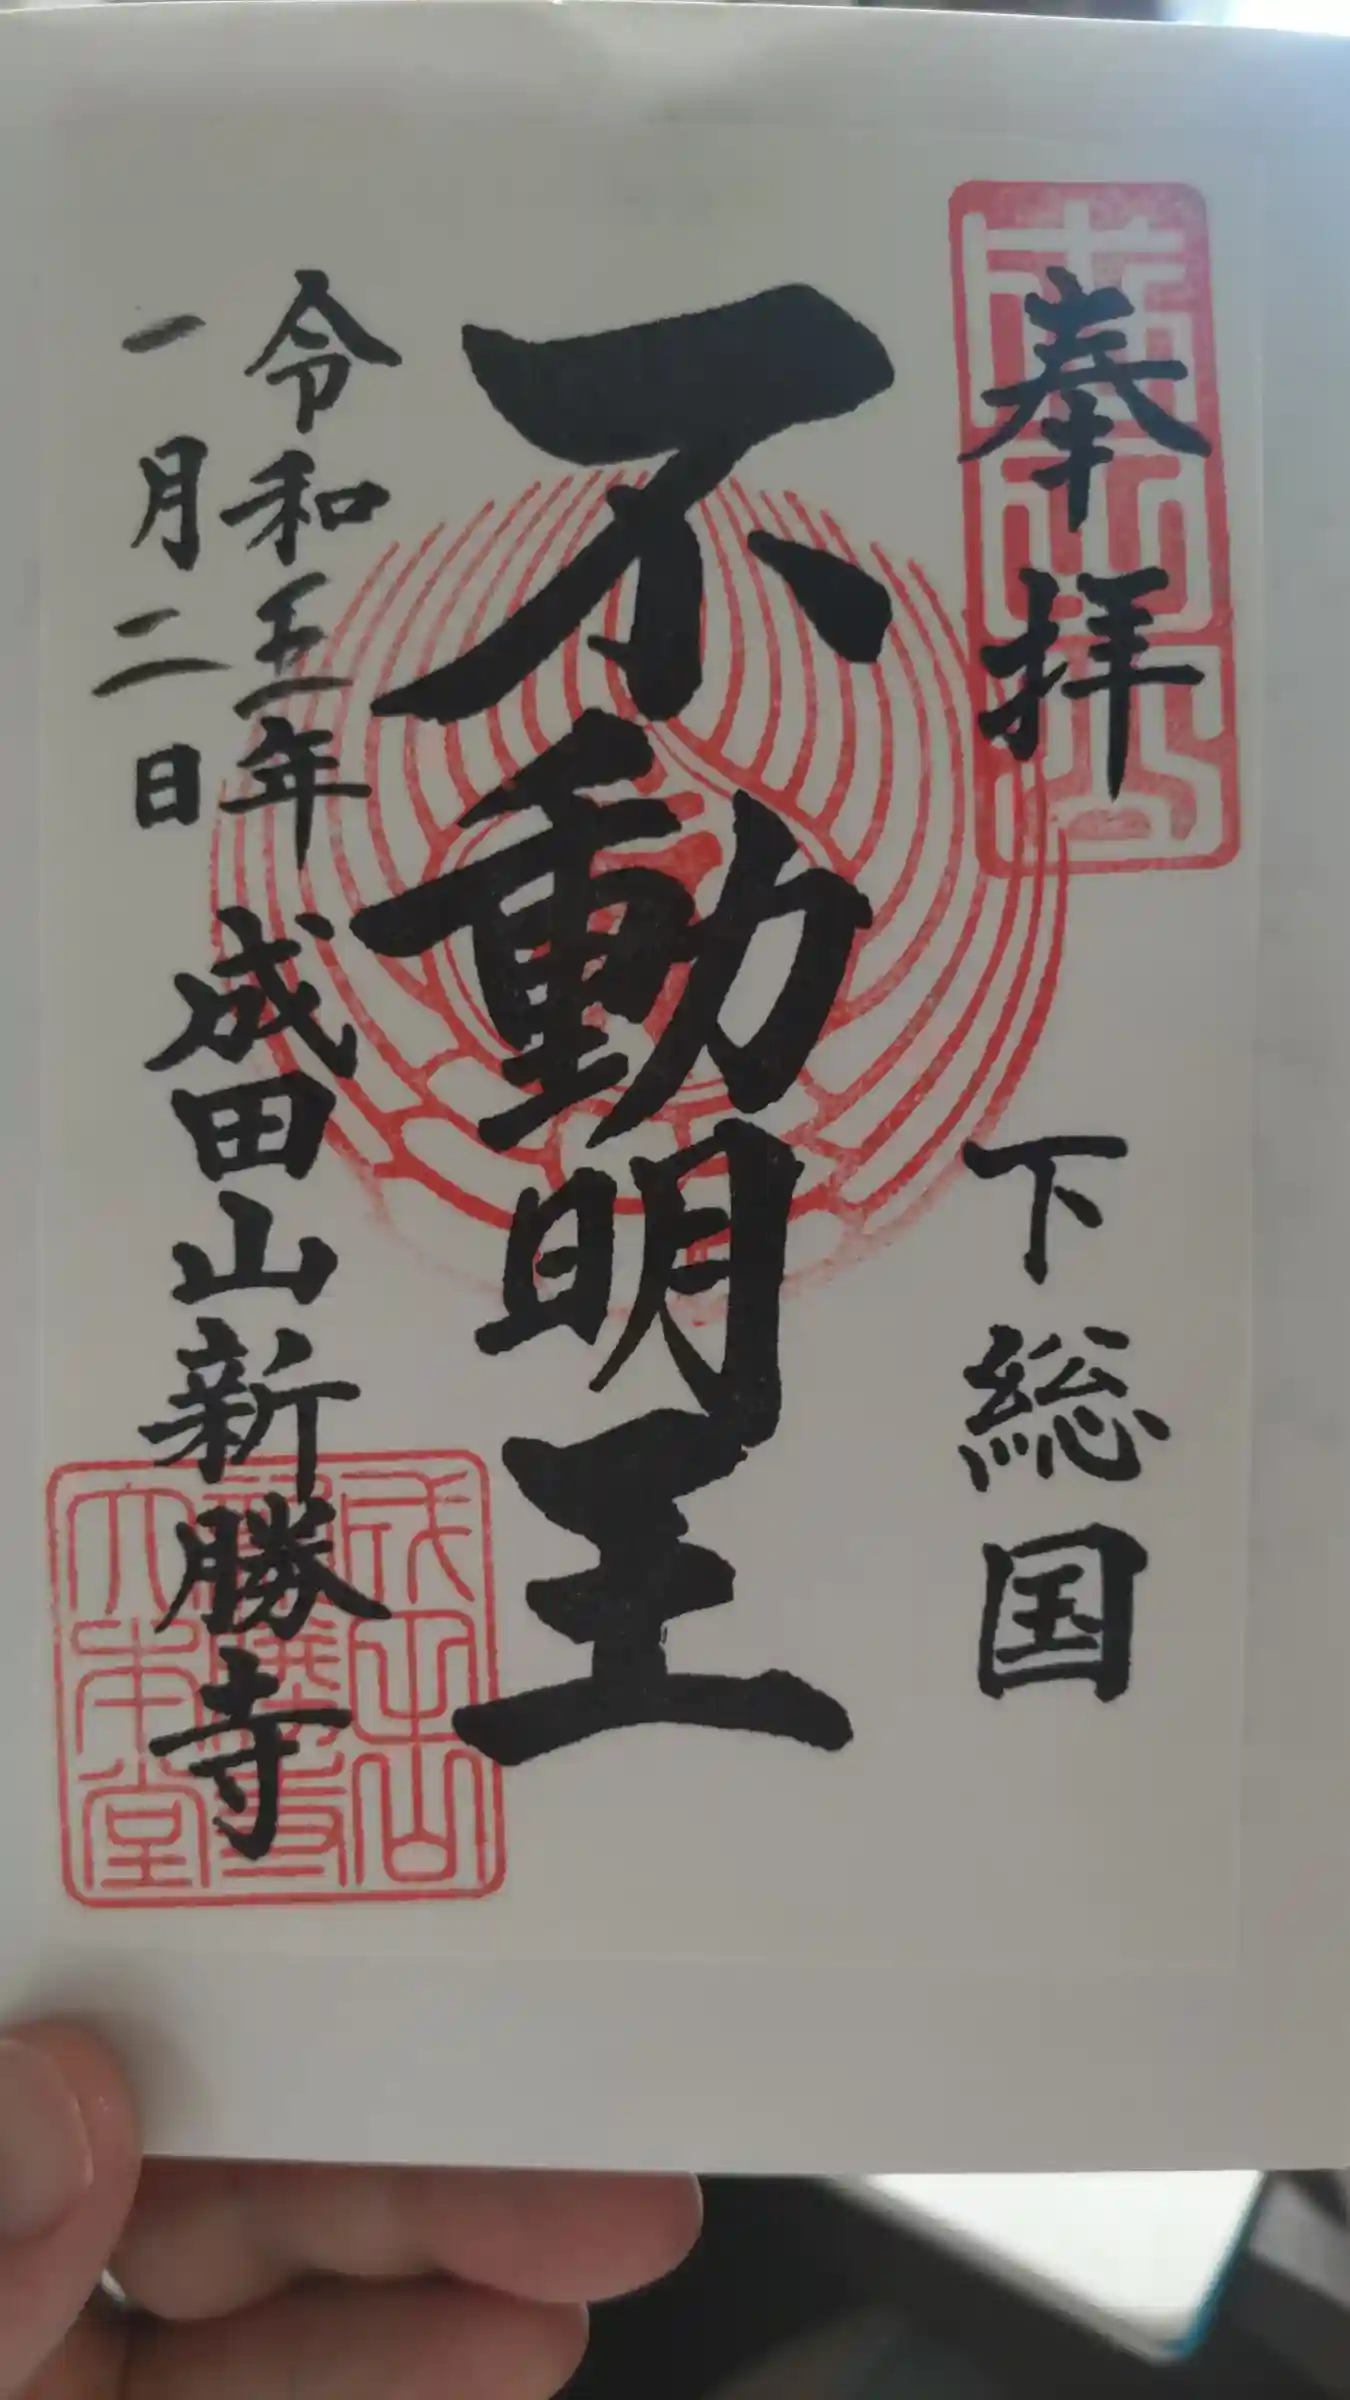 奉拝
下総国
不動明王
令和五年
一月二日
成田山新勝寺
成田山
新勝寺
大本堂